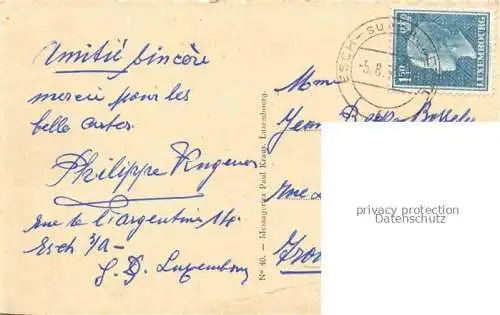 Amitié sincère
merci pour les
belle cartes
Philippe
rue de l'argentine 14
Esch s/A-
G. D. Luxembourg
No 40. — Messageries Paul Kraus, Luxembourg.
ESCH-SUR-
-5.8.
LUXEMBOURG
1.50
Mme
Jean
rue
privacy protection
Datenschutz